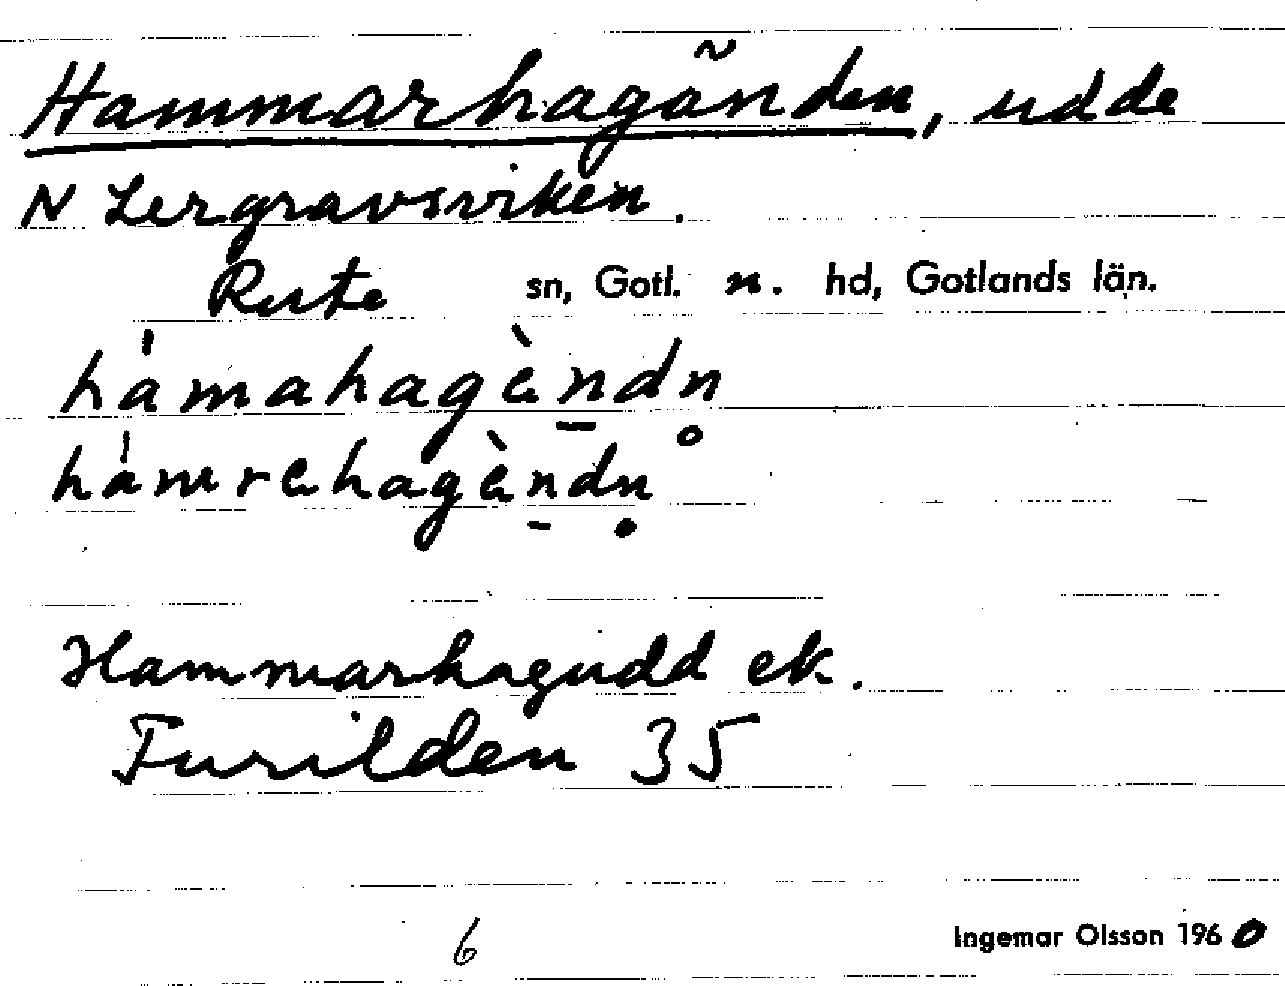 Hammarhagänden, udde
N Lergravsviken.
Rute sn, Gotl. n. hd, Gotlands län.
hámahagèn̲dn̥
hámrehagèn̲dṇ
Hammarhagudd ek.
Furilden 35
6
Ingemar Olsson 1960